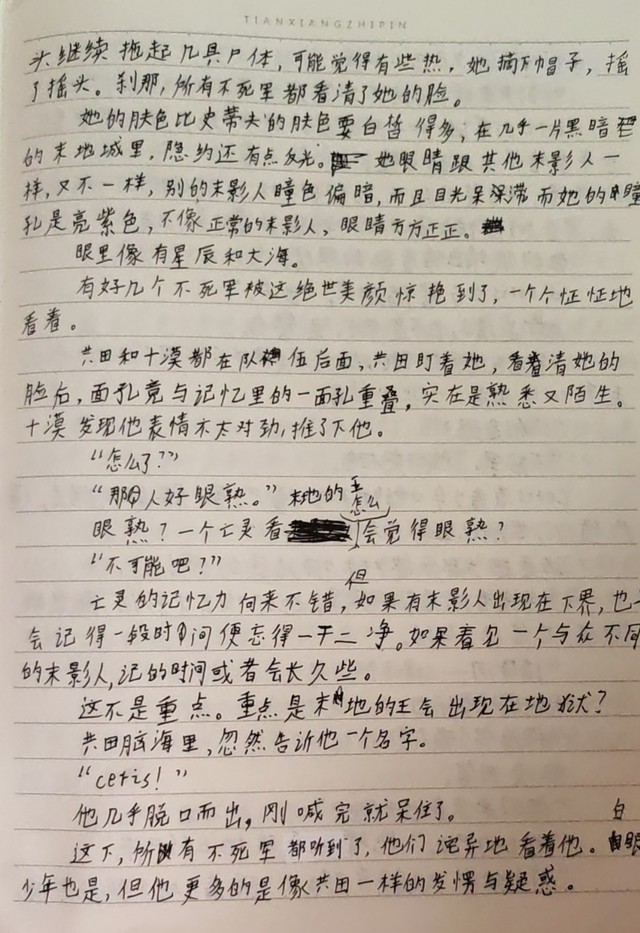 TIANXIANGZHIPIN
头继续拖起几具尸体，可能觉得有些热，她摘下帽子，摇
了摇头。刹那，所有不死军都看清了她的脸。
她的肤色比史蒂夫的肤色要白皙得多，在几乎一片黑暗
的末地城里，隐约还有点反光。她眼睛跟其他末影人一
样，又不一样，别的末影人瞳色偏暗，而且目光呆滞而她的瞳
孔是亮紫色，不像正常的末影人，眼睛方方正正。
眼里像有星辰和大海。
有好几个不死军被这绝世美颜惊艳到了，一个个怔怔地
看着。
共田和十漠都在队伍后面，共田盯着她，看清她的
脸后，面孔竟与记忆里的一面孔重叠，实在是熟悉又陌生。
十漠发现他表情不太对劲，推了下他。
“怎么了？”
“那人好眼熟。”
眼熟？一个亡灵看末地的王怎么会觉得眼熟？
“不可能吧？”
亡灵的记忆力向来不错，但如果有末影人出现在下界，也
会记得一段时间便忘得一干二净。如果看见一个与众不同
的末影人，记的时间或者会长久些。
这不是重点。重点是末地的王会出现在地狱？
共田脑海里，忽然告诉他一个名字。
“ceris！”
他几乎脱口而出，刚喊完就呆住了。
这下，所有不死军都听到了，他们诧异地看着他。白眼
少年也是，但他更多的是像共田一样的发愣与疑惑。